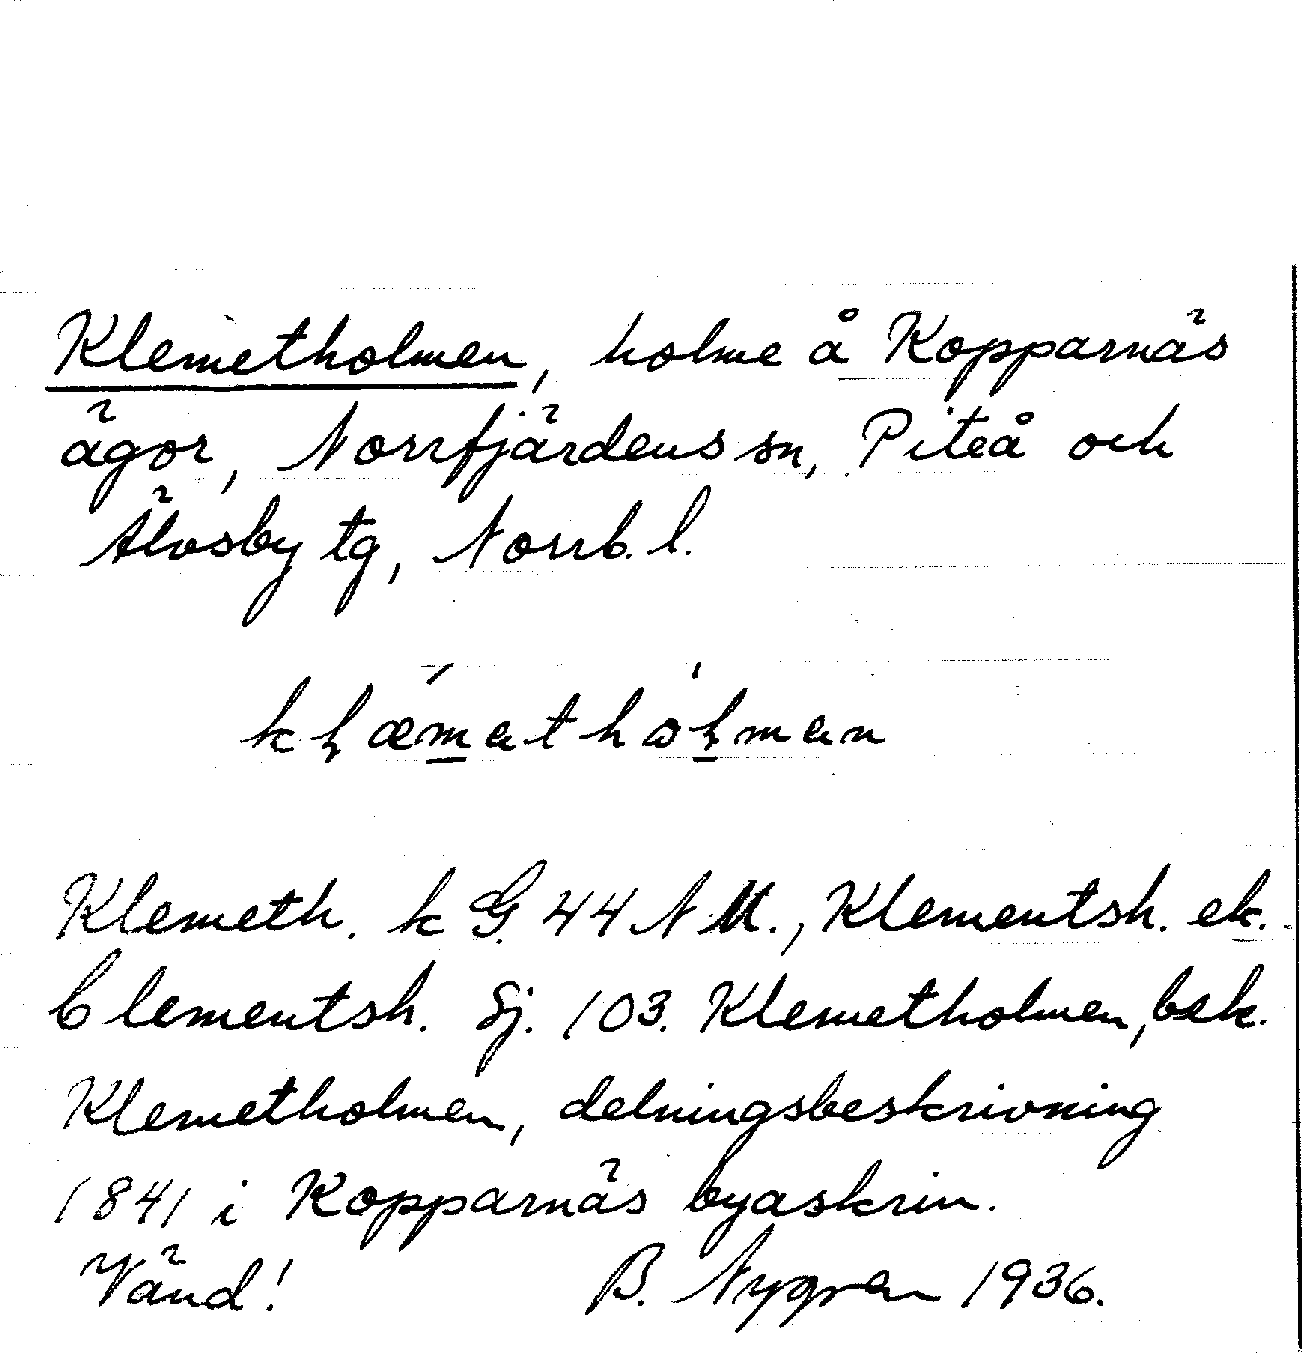 Klemetholmen, holme å Kopparnäs
ägor, Norrfjärdens sn, Piteå och
Älvsby tg, Norrb. l.
kḷæ̀m̲athòḷ̲man
Klemeth. k G. 44 N M., Klementsh. ek.
Clementsh. Sj. 103. Klemetholmen, bek.
Klemetholmen, delningsbeskrivning
1841 i Kopparnäs byaskrin.
Vänd! B. Nygren 1936.